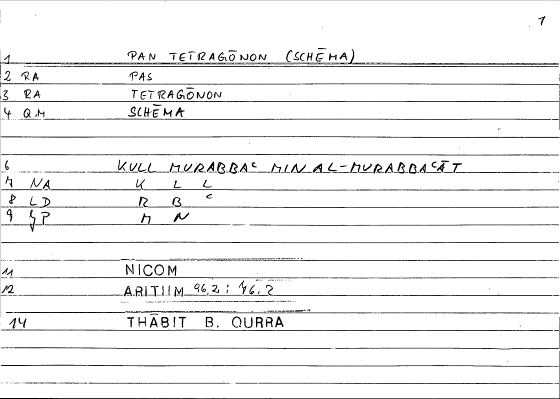 1
1 PAN TETRAGŌNON (SCHĒMA)
2 RA PAS
3 RA TETRAGŌNON
4 QM SCHĒMA
6 KULL MURABBAᶜ MIN AL-MURABBAᶜĀT
7 NA K L L
8 LD R B ᶜ
9 JP M N
11 NICOM
12 ARITHM 96.2 : 76.2
14 THĀBIT B. QURRA